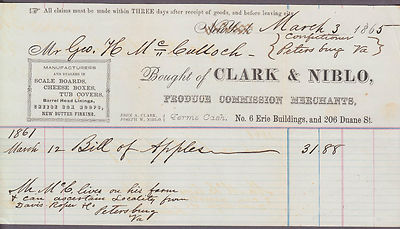 All claims must be made within THREE days after receipt of goods, and before leaving city.
March 3 1865
Mr Geo. H. McCulloch -
Confectioner
Petersburg
Va
Bought of CLARK & NIBLO,
PRODUCE COMMISSION MERCHANTS,
MANUFACTURERS
AND DEALERS IN
SCALE BOARDS,
CHEESE BOXES,
TUB COVERS,
Barrel Head Linings,
NEW BUTTER FIRKINS.
JOHN A. CLARK,
JOSEPH W. NIBLO,
Terms Cash.
No. 6 Erie Buildings, and 206 Duane St.
1861
March 12 Bill of Apples 31.88
Mr McC. lives on his farm
& can ascertain Locality from
Davis Roper & Co
Petersburg
Va